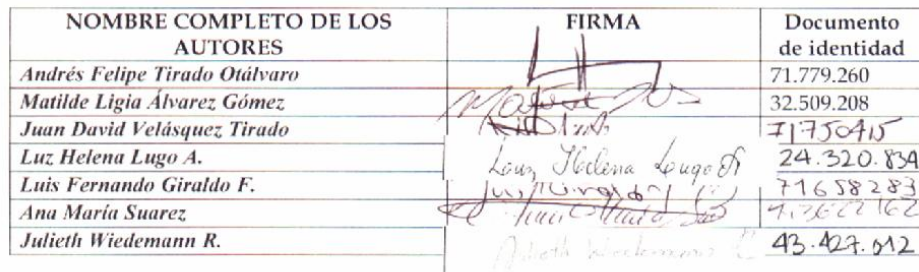 NOMBRE COMPLETO DE LOS AUTORES FIRMA Documento de identidad
Andrés Felipe Tirado Otálvaro 71.779.260
Matilde Ligia Álvarez Gómez 32.509.208
Juan David Velásquez Tirado 71750415
Luz Helena Lugo A. Luz Helena Lugo A 24.320.834
Luis Fernando Giraldo F. 71658283
Ana María Suarez
Julieth Wiedemann R. Julieth Wiedemann R 43.427.012